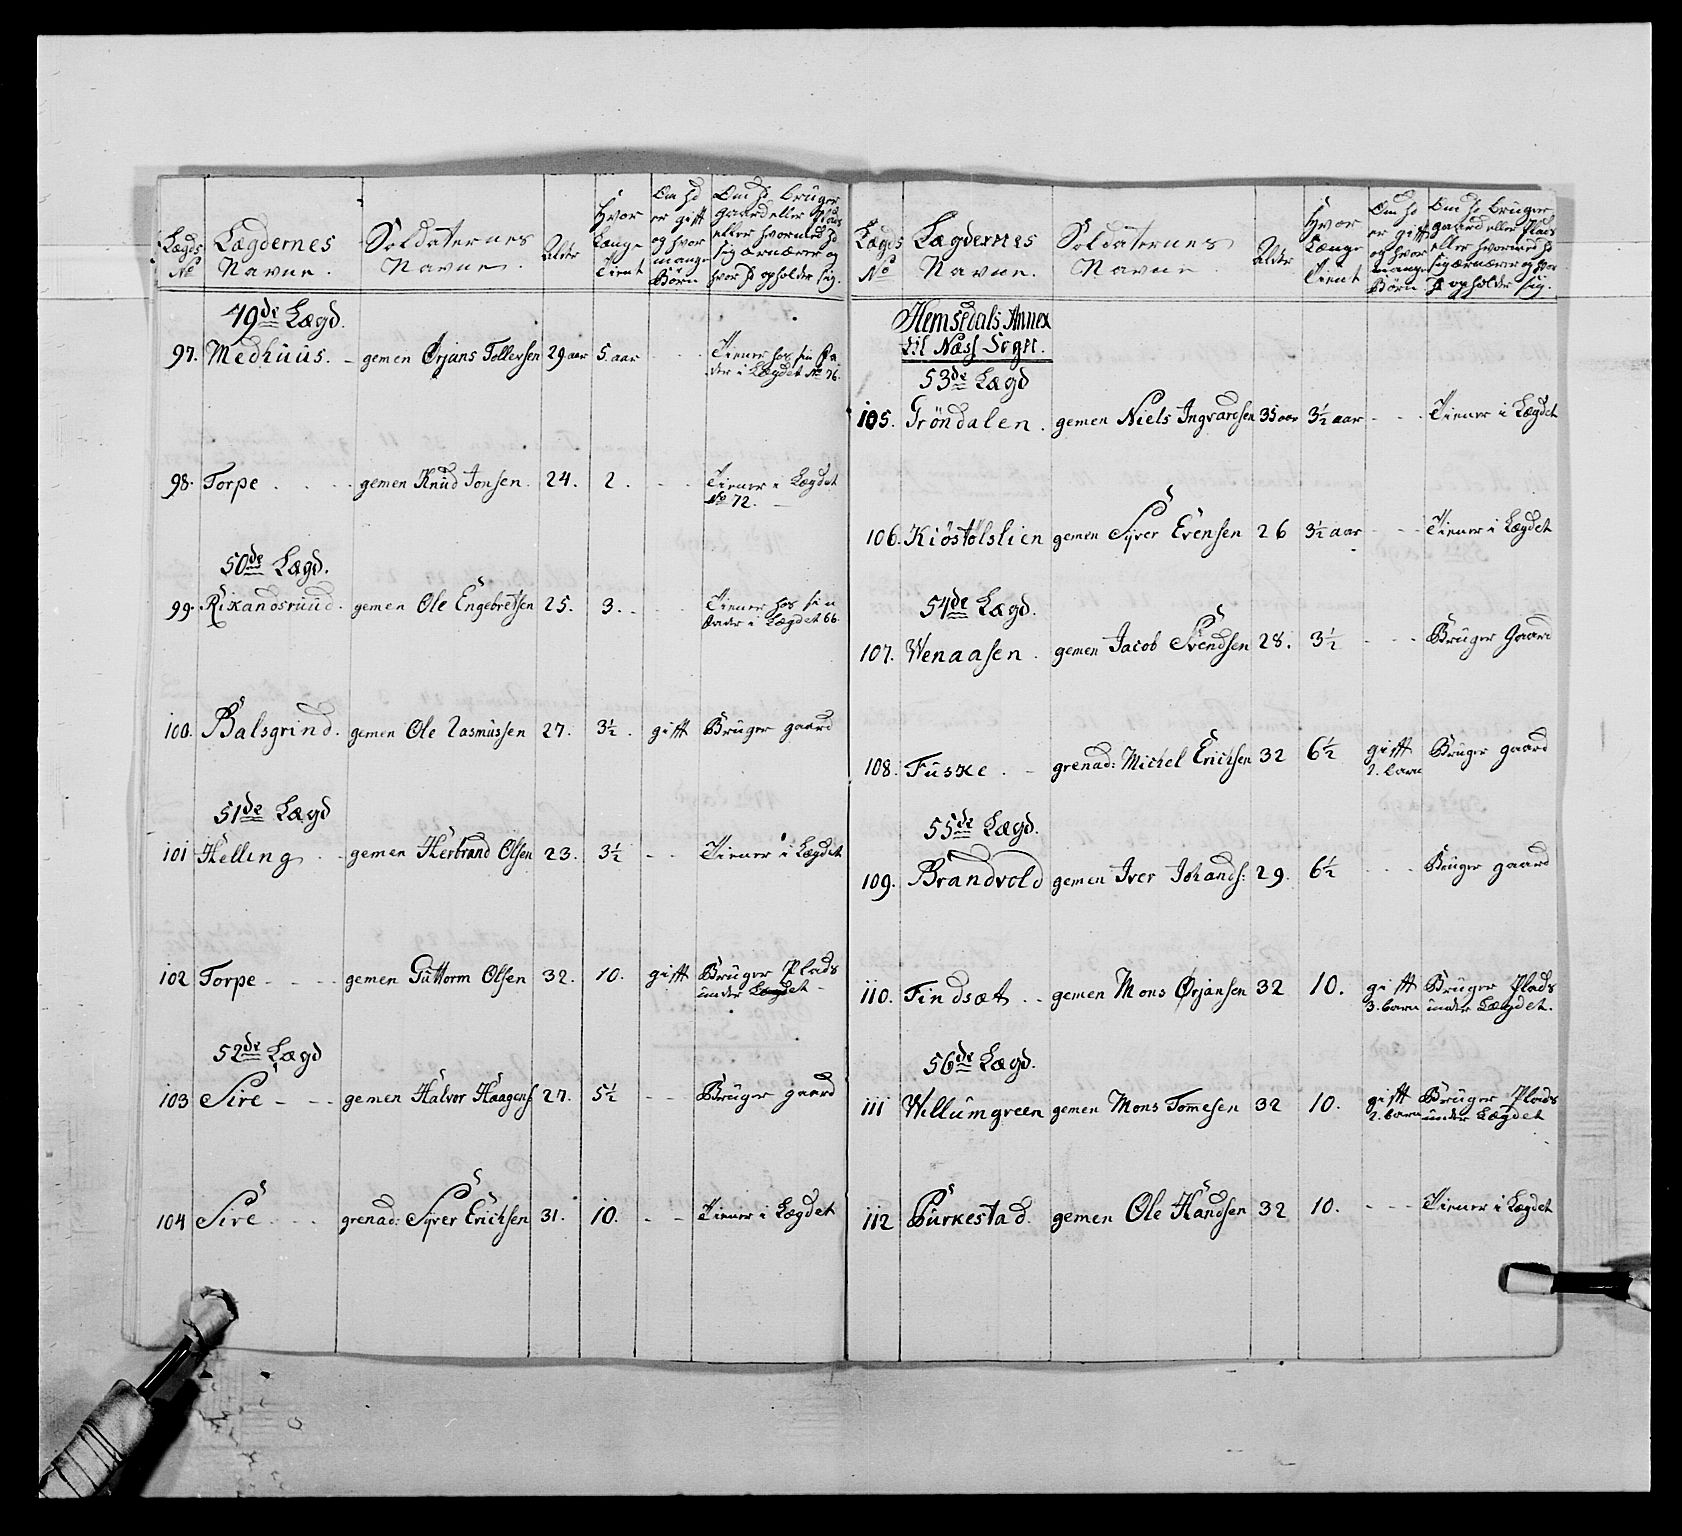 Lægds No
Lægdernes Navne.
Soldaternes Navne.
Alder
Hvor Længe Tient
Om hd er gift og hvor mange Börn
Om hd bruger gaard eller Plads eller hvormed hd sig ærnærer og hvor hd opholder sig.
49de Lægd.
97. Medhuus. - gemen Ørjans Tollevsen 29 aar 5. aar - - Tiener hos sin Fa
der i Lægdet No 76.
98. Torpe . . . gemen Knud Jonsen. 24. 2. - - Tiener i Lægdet
No 72.
50de Lægd.
99. Rixandsruud. gemen Ole Engebretsen 25. 3. - - Tiener hos sin
i Lægdet 66.
100. Balsgrind. gemen Ole Rasmussen 27. 3½. gift Bruger gaard
51de Lægd
101 Helling . . gemen Herbrand Olsen 23. 3½ - - Tiener i Lægdet
102 Torpe - - - gemen Guttorm Olsen 32. 10. gift Bruger Plads
under Lægdet -
52de Lægd
103 Sire - - - gemen Halvor Haagens 27. 5½ - - Bruger gaard
104 Sire - - - grenad: Syver Erichsen 31. 10. - - Tiener i Lægdet
Lægds No
Lægdernes Navne.
Soldaternes Navne.
Alder
Hvor Længe Tient
Om hd er gift og hvor mange Börn
Om hd bruger gaard eller Plads eller hvormed hd sig ærnærer og hvor hd opholder sig.
Hemsedals Annex
til Næss Sogn.
53de Lægd
105. Tröndalen. gemen Niels Ingvardsen 35 aar 3½ aar - - Tiener i Lægdet
106. Kiöstölslien gemen Syver Evensen 26 3½ aar - - Tiener i Lægdet
54de Lægd.
107. Wenaasen. gemen Jacob Svendsen 28. 3½ - - Bruger Gaard
108. Fuske . - grenad: Michel Erichsen 32 6½ gift Bruger gaard
2. barn
55de Lægd.
109. Brandvold gemen Iver Johands: 29. 6½ - - Bruger gaard
110. Findsæt . . gemen Mons Ørjansen 32 10. gift Bruger Plads
3. barn under Lægdet.
56de Lægd.
111 Willumgreen gemen Mons Tomesen 32 10. gift Bruger Plads
2. barn under Lægdet
112 Burkestad. gemen Ole Handsen 32 10. - - - Tiener i Lægdet